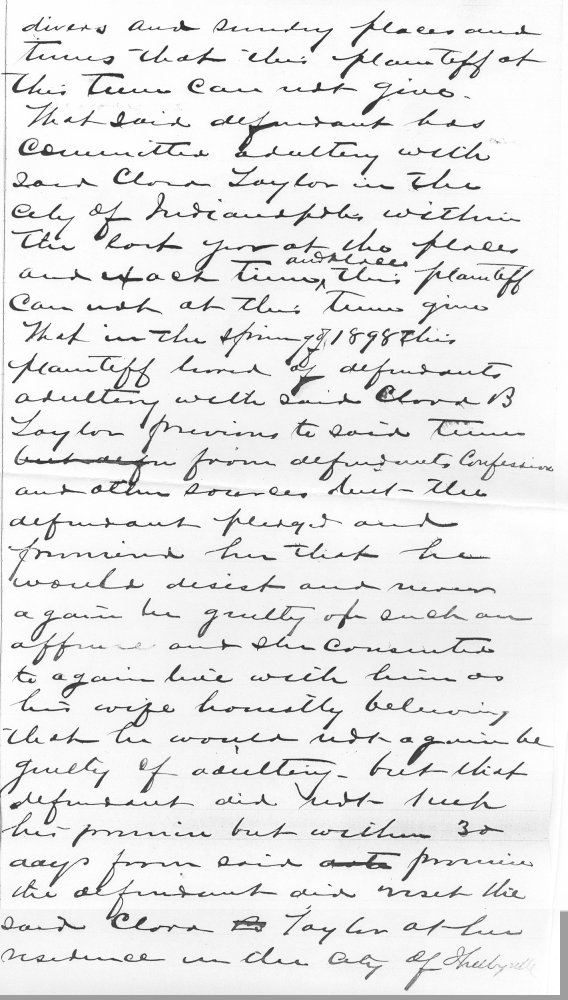 divers and sundry places and
times that this plaintiff at
this time can not give.
That said defendant has
committed adultery with
said Clora Taylor in the
city of Indianapolis within
the last year at the places
and exact time and places, this plaintiff
can not at this time give
That in the spring of 1898 this
plaintiff lived of defendants
adultery with said Clora B
Taylor previous to said time
from defendants Confession
and other sources but the
defendant pledged and
promised her that he
would desist and never
again be guilty of such an
offense and she consented
to again live with him as
his wife honestly believing
that he would not again be
guilty of adultery - but that
defendant did not keep
his promise but within 30
days from said promise
the defendant did visit the
said Clora B Taylor at her
residence in the city of Shelbyville